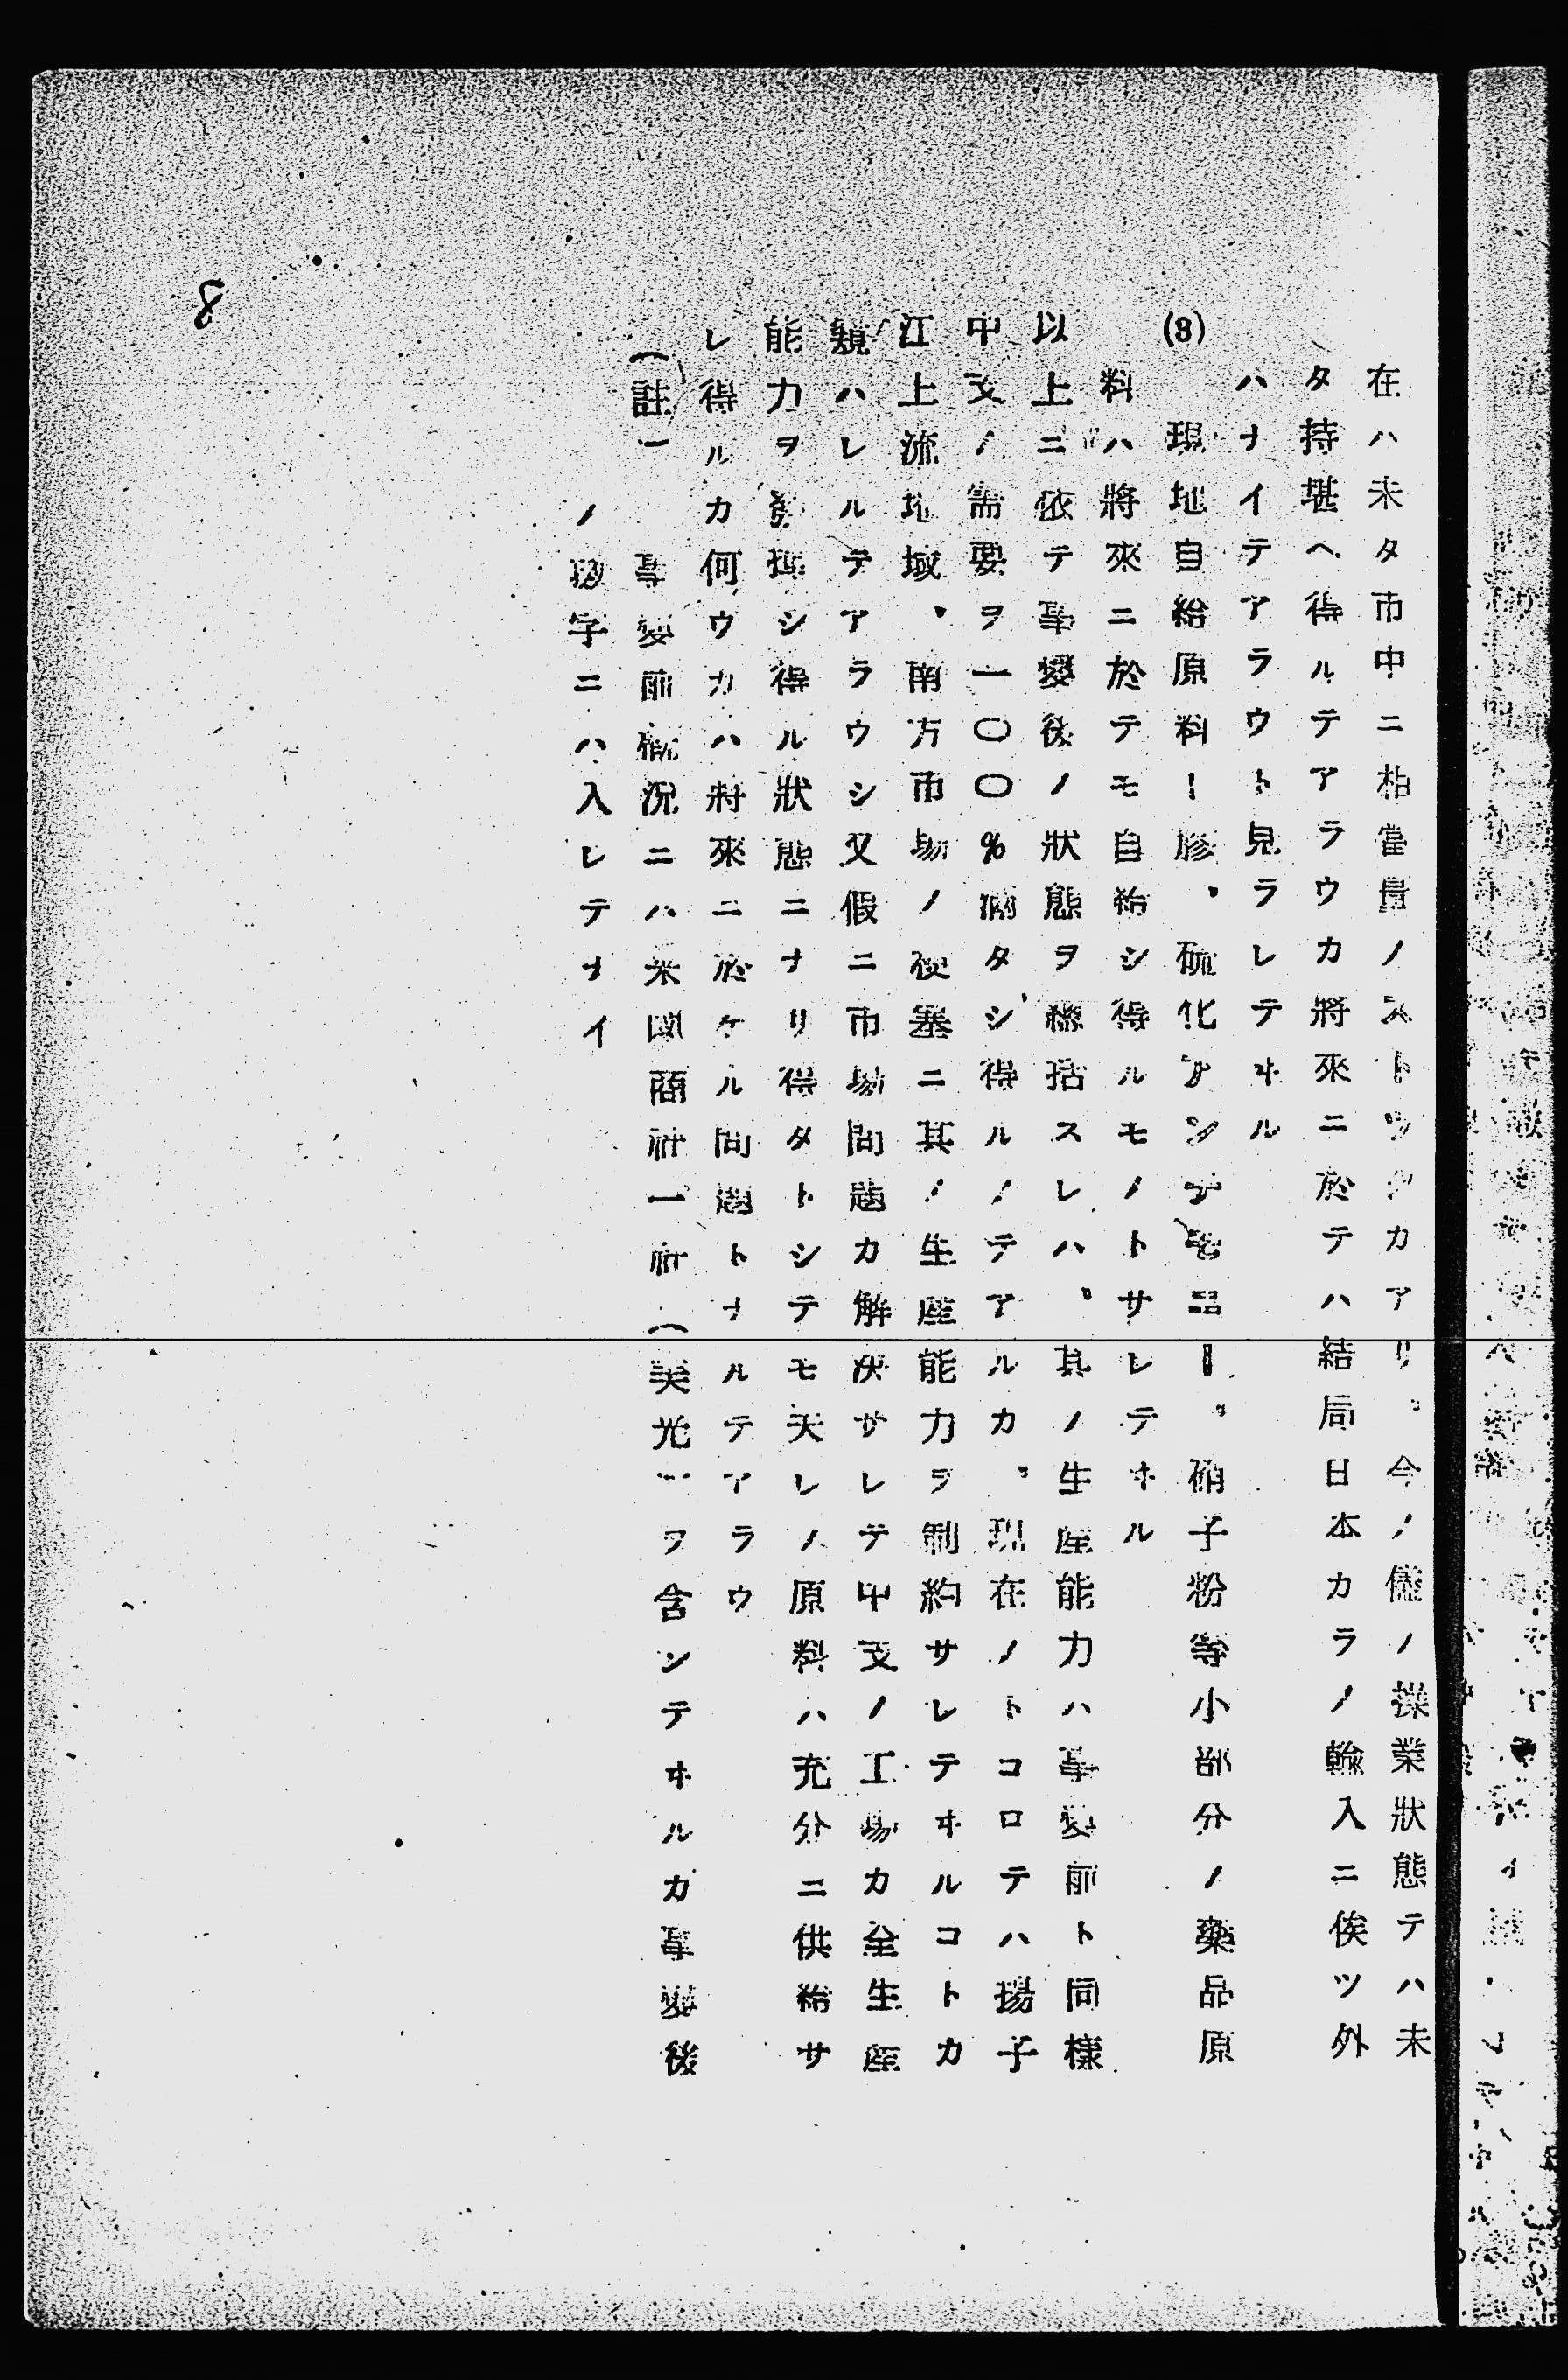 在ハ未タ市中ニ相當量ノストツクカアリ。今ノ儘ノ操業狀態テハ未
タ持堪ヘ得ルテアラウカ將來ニ於テハ結局日本カラノ輸入ニ俟ツ外
ハナイテアラウト見ラレテヰル
(3) 現地自給原料ー膠、硫化アンチモ品ー。硝子粉等小部分ノ藥品原
料ハ將來ニ於テモ自給シ得ルモノトサレテヰル
以上ニ依テ事變後ノ狀態ヲ總括スレハ、其ノ生産能力ハ事變前ト同樣
中支ノ需要ヲ一〇〇%滿タシ得ルノテアルカ。現在ノトコロテハ揚子
江上流地域、南方市場ノ梗塞ニ其ノ生産能力ヲ制約サレテヰルコトカ
窺ハレルテアラウシ又假ニ市場問題カ解決サレテ中支ノ工場カ全生産
能力ヲ發揮シ得ル狀態ニナリ得タトシテモ夫レノ原料ハ充分ニ供給サ
レ得ルカ何ウカハ將來ニ於ケル問題トナルテアラウ
(註)一 事變前概況ニハ米國商社一社(美光)ヲ含ンテヰルカ事變後
ノ數字ニハ入レテナイ
8